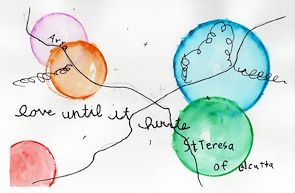 Ar
love until it hurts
St Teresa
of alcutta